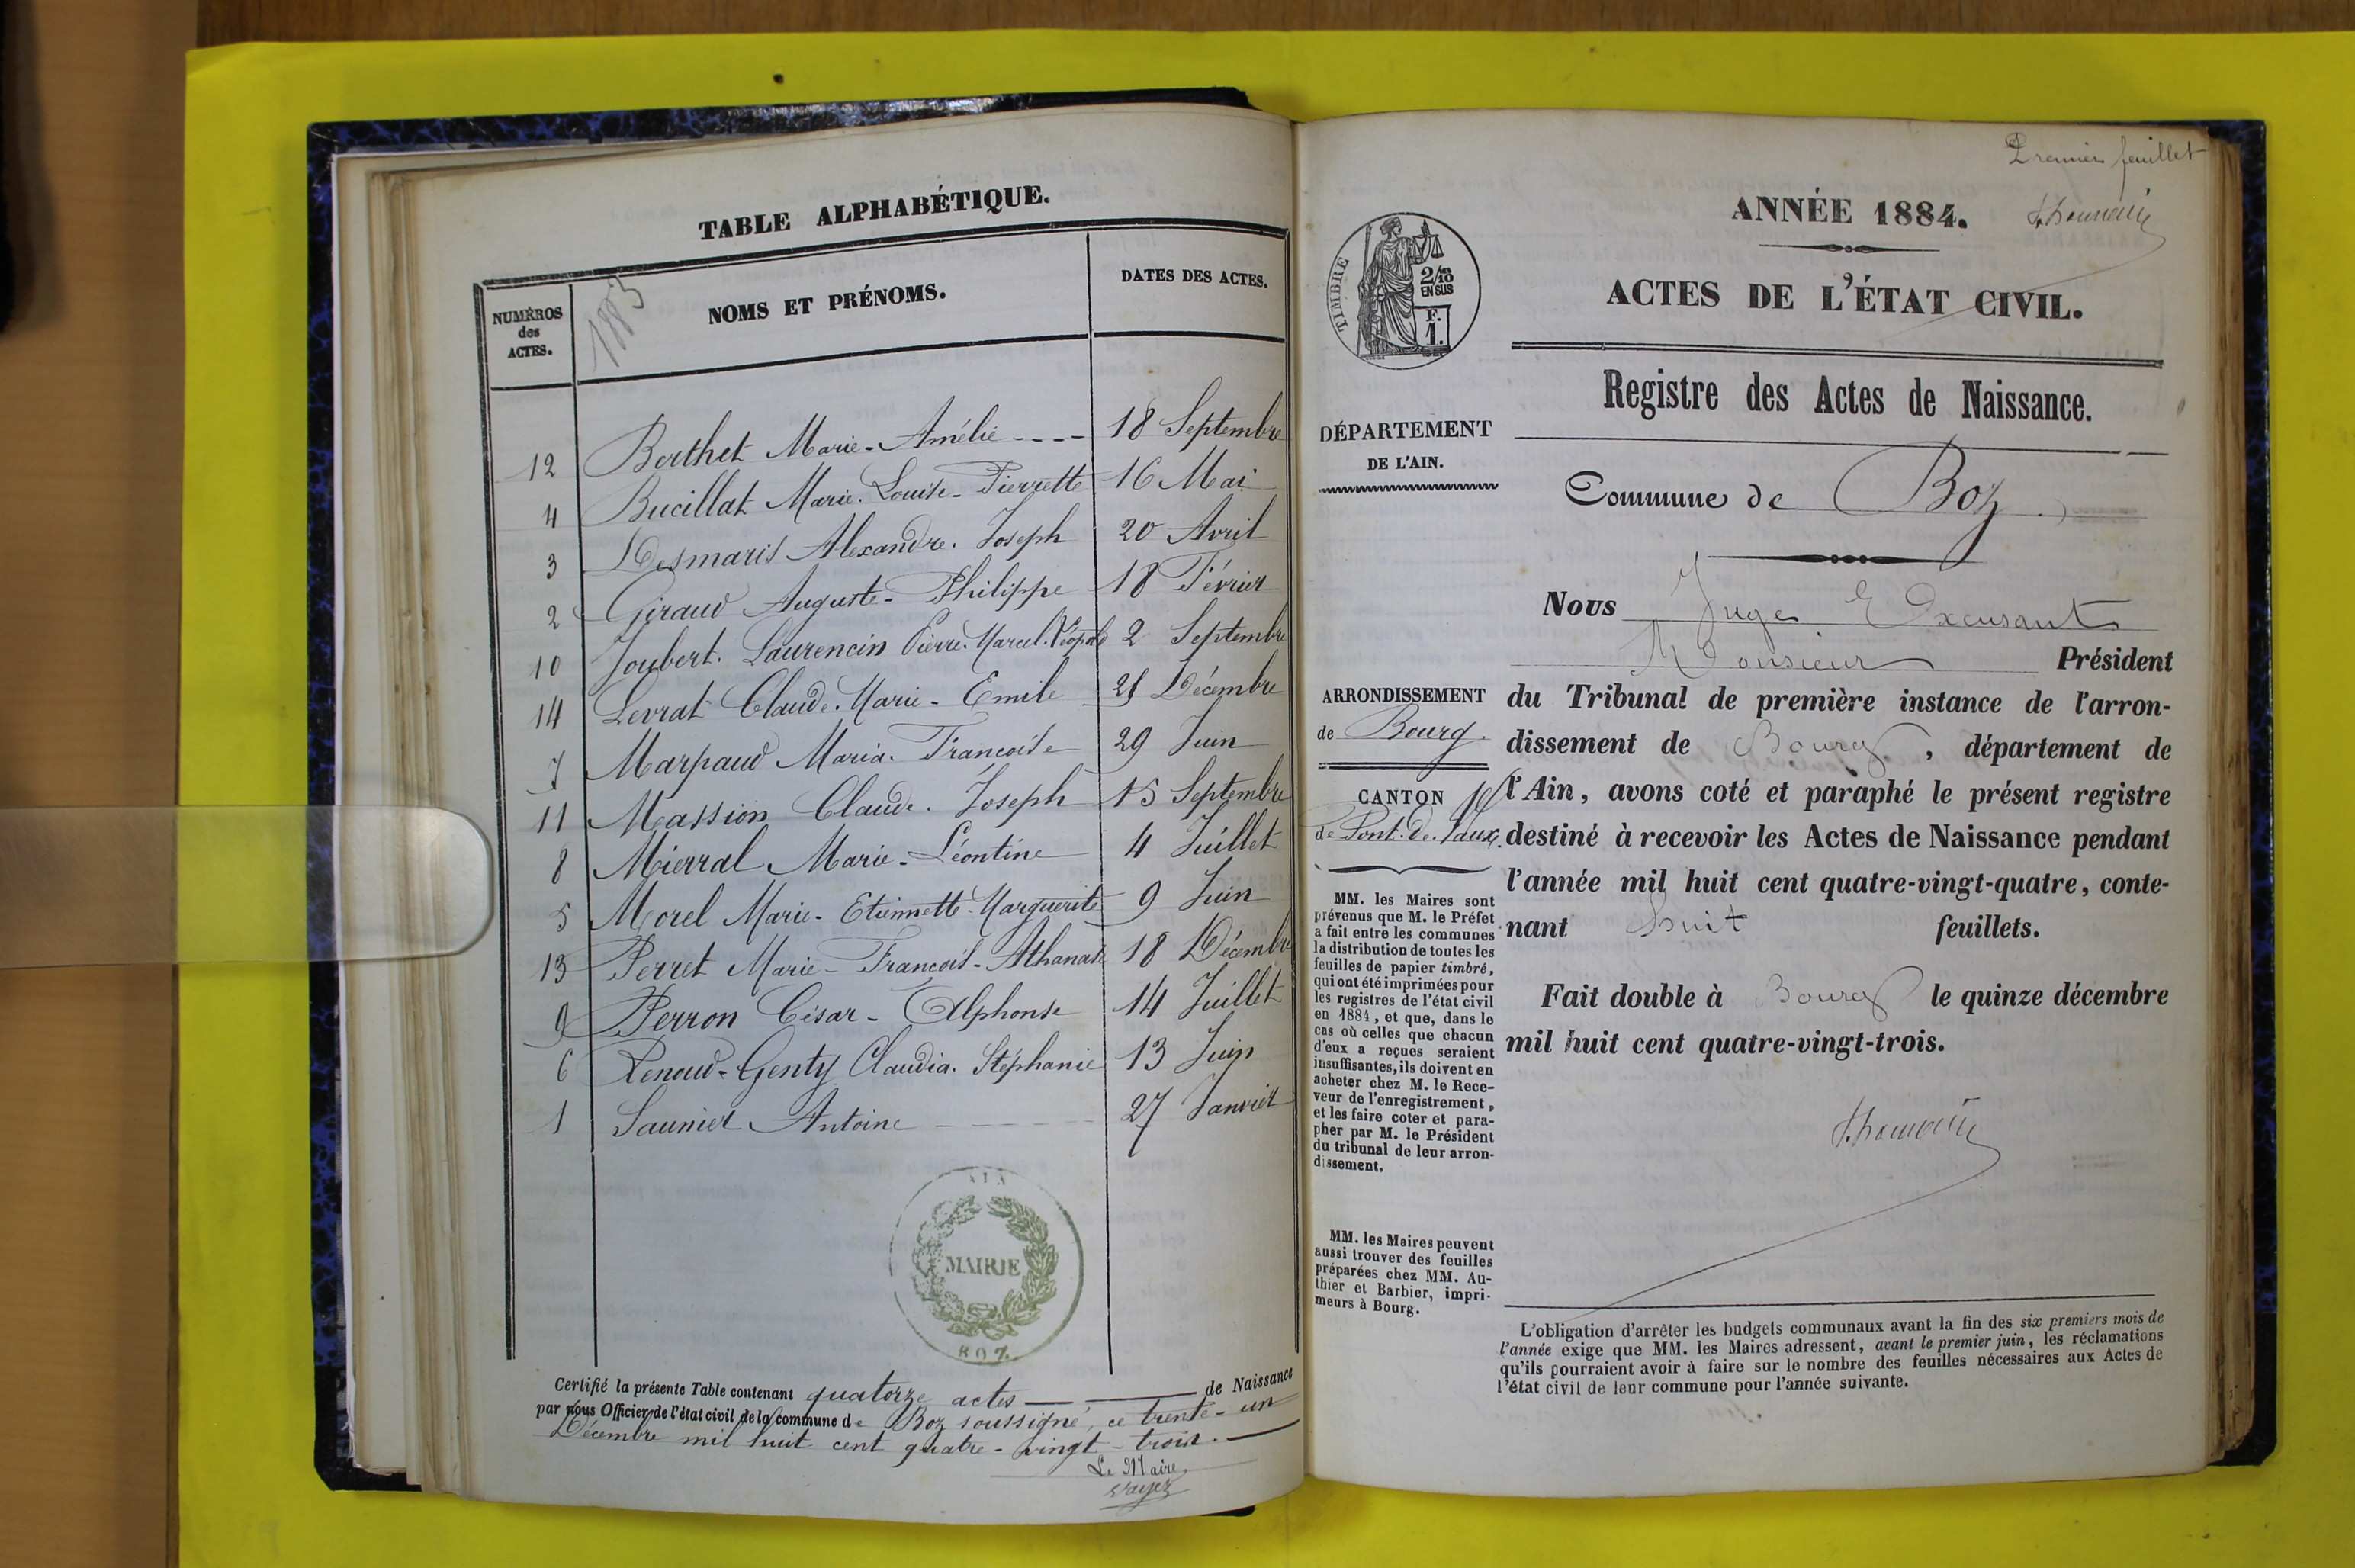 TABLE ALPHABÉTIQUE.
NUMÉROS des ACTES.
1883
NOMS ET PRÉNOMS.
DATES DES ACTES.
12 Berthet Marie-Amélie ---- 18 Septembre
4 Bucillat Marie-Louise-Pierrette 16 Mai
3 Desmaris Alexandre-Joseph 20 Avril
2 Giraud Auguste-Philippe 18 Février
10 Joubert-Laurencin Pierre-Marcel-Léopold 2 Septembre
14 Levrat Claude-Marie-Emile 21 Décembre
7 Marpaud Maria-Françoise 29 Juin
11 Massion Claude-Joseph 15 Septembre
8 Mierral Marie-Léontine 4 Juillet
5 Morel Marie-Etiennette-Marguerite 9 Juin
13 Perret Marie-François-Athanase 18 Décembre
9 Perron César-Alphonse 14 Juillet
6 Renaud-Genty Claudia-Stéphanie 13 Juin
1 Saunier Antoine 27 Janvier
AIN
MAIRIE
BOZ
Certifié la présente Table contenant quatorze actes de Naissance
par nous Officier de l'état civil de la commune de Boz soussigné, ce trente-un
Décembre mil huit cent quatre-vingt-trois.
Le Maire
Premier feuillet
ANNÉE 1884.
ACTES DE L'ÉTAT CIVIL.
TIMBRE
2/10 EN SUS
F. 1.
Registre des Actes de Naissance.
DÉPARTEMENT
DE L'AIN.
Commune de Boz
ARRONDISSEMENT
de Bourg.
CANTON
de Pont-de-Vaux.
MM. les Maires sont
prévenus que M. le Préfet
a fait entre les communes
la distribution de toutes les
feuilles de papier timbré,
qui ont été imprimées pour
les registres de l'état civil
en 1884, et que, dans le
cas où celles que chacun
d'eux a reçues seraient
insuffisantes, ils doivent en
acheter chez M. le Rece-
veur de l'enregistrement,
et les faire coter et para-
pher par M. le Président
du tribunal de leur arron-
dissement.
MM. les Maires peuvent
aussi trouver des feuilles
préparées chez MM. Au-
thier et Barbier, impri-
meurs à Bourg.
Nous Juge Excusant
Monsieur Président
du Tribunal de première instance de l'arron-
dissement de Bourg, département de
l'Ain, avons coté et paraphé le présent registre
destiné à recevoir les Actes de Naissance pendant
l'année mil huit cent quatre-vingt-quatre, conte-
nant huit feuillets.
Fait double à Bourg le quinze décembre
mil huit cent quatre-vingt-trois.
L'obligation d'arrêter les budgets communaux avant la fin des six premiers mois de
l'année exige que MM. les Maires adressent, avant le premier juin, les réclamations
qu'ils pourraient avoir à faire sur le nombre des feuilles nécessaires aux Actes de
l'état civil de leur commune pour l'année suivante.